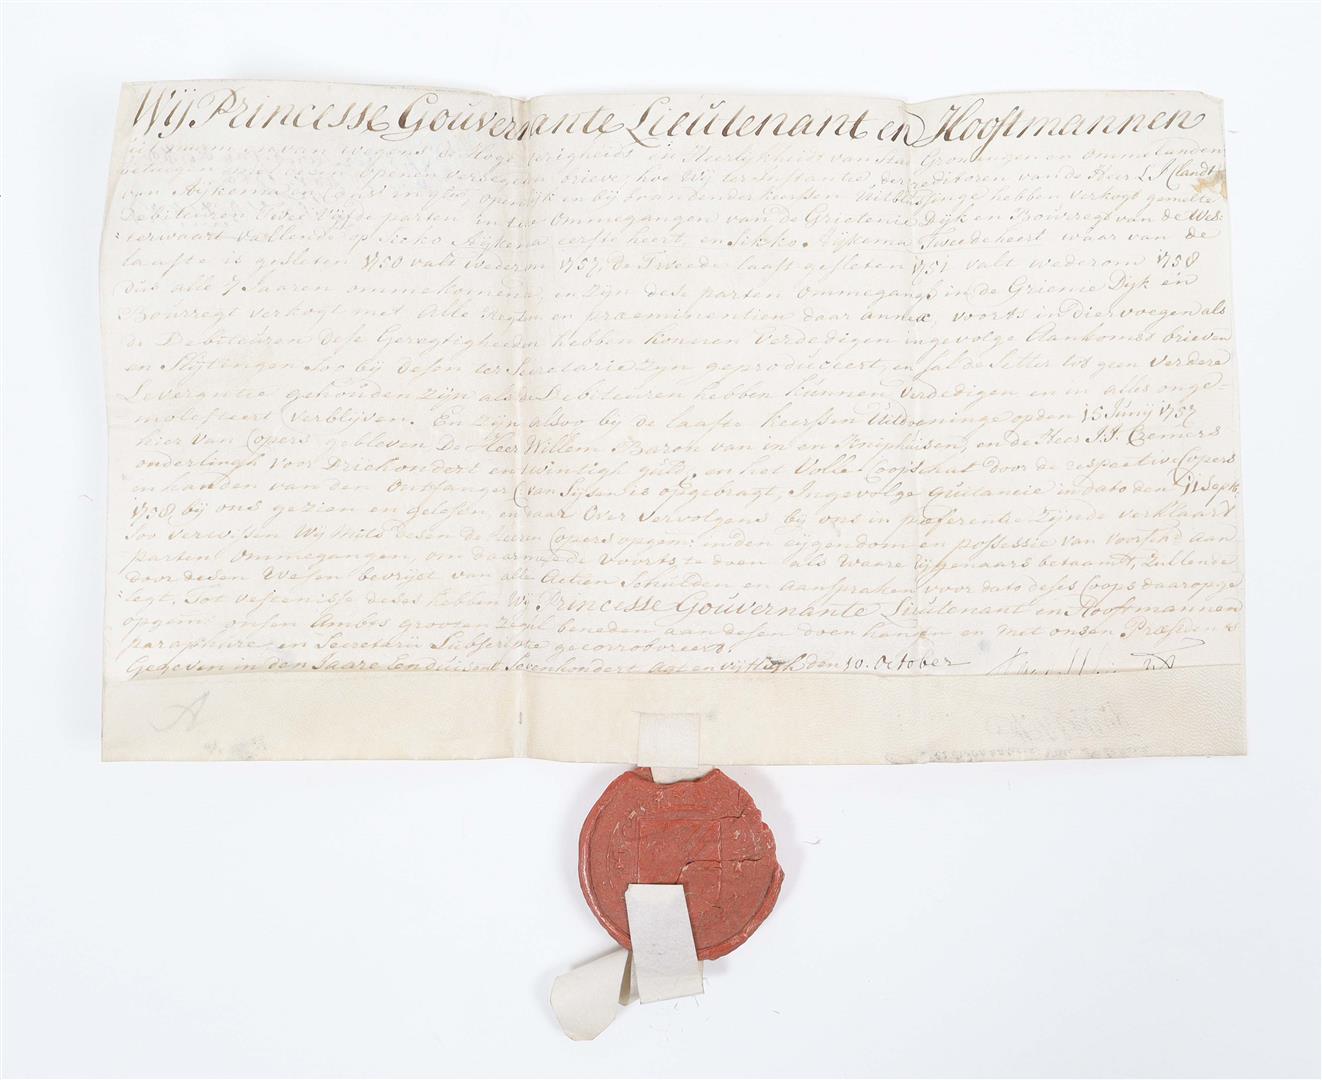 Wij Princesse Gouvernante Lieutenant en Hooftmannen
wegens de Hoge Overigheids en Heerlijkheids van Stad Groningen en Ommelanden
betuigen desen openen versegelden brieve, hoe Wij ter instantie der Crediteuren van de Heer L J Clandt
van Aijkema en ons openlijk en bij brandender keerssen Uitblussinge hebben verkogt gemelte
Debiteuren Twee Vijfde parten in de Ommegangen van de Grietenie Dijk en Bouregt van de Wes:
:terwaart vallende op Sicko Aijkema eerste heert, en Sikko Aijkema Tweede heert waar van de
laaste is gesleten 1750 valt wederom 1757, de Tweede laast gesleten 1751 valt wederom 1758
dus alle 7 Jaaren ommekomende, en zijn dese parten Ommegangs in de Grienie Dijk en
Bourregt verkogt met alle Regten en præeminentien daar annex, voorts in dier voegen als
de Debiteuren dese Geregtigheeden hebben konnen Verdedigen ingevolge Aankomst brieven
en Slijtingen soo bij desen ter Secretarie zijn geproduceert, en sal de Setter tot geen verdere
Leverantie gehouden zijn als de Debiteuren hebben kunnen Verdedigen en in alles onge-
molesteert verblijven. En zijn alsoo bij de laaste keerssen Uitdoeninge op den 15 Junij 1757
hier van Copers gebleven De Heer Willem Baron van in en Kniphuisen, en de Heer J. J. Cremers
onderlingh voor Driehondert en twintigh guld, en het Volle Coopschat door de respective Copers
in handen van den Ontfanger van Sijsen is opgebragt, Ingevolge Quitancie in dato den 11 Septb.
1758 bij ons gezien en gelesen, en daar over vervolgens bij ons in præferentie zijnde verklaart
Soo verwissen Wij mits desen de Heeren Copers opgem: in den eijgendom en possessie van voorschr. aan
parten Ommegangen om daarmede voorts te doen als waare eijgenaars betaamt, Zullende
door desen Wesen bevrijdt van alle Actien Schulden en aanspraken voor dato deses Coops daarop ge
legt. Tot vestenisse deses hebben Wij Princesse Gouvernante Lieutenant en Hooftmannen
opgem: onsen Ambts grooten Zegel beneden aan desen doen hangen en met onsen Præsidents
paraphure, en Secretarij Subscriptie gecorroboreert.
Gegeven in den Jaare Een Duisent Sevenhondert Agt en vijftigh den 10. October
A